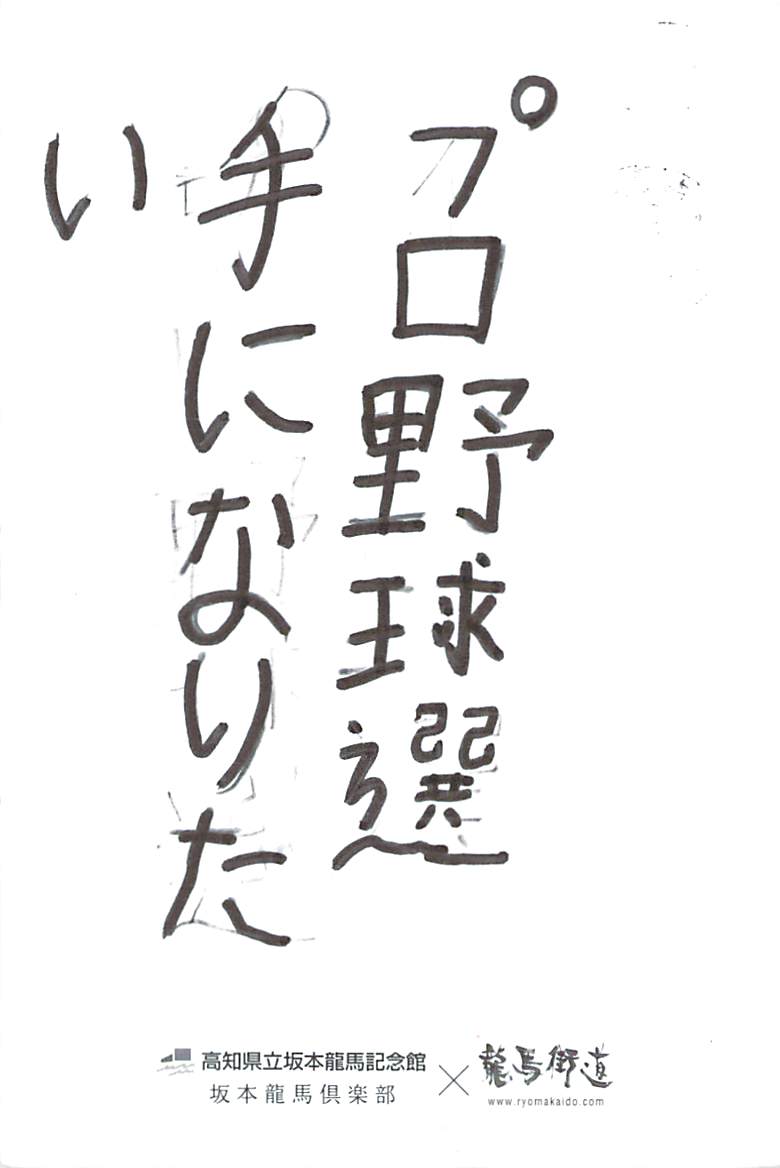 プロ野球選
手になりた
い
高知県立坂本龍馬記念館
坂本龍馬倶楽部
×
龍馬街道
www.ryomakaido.com